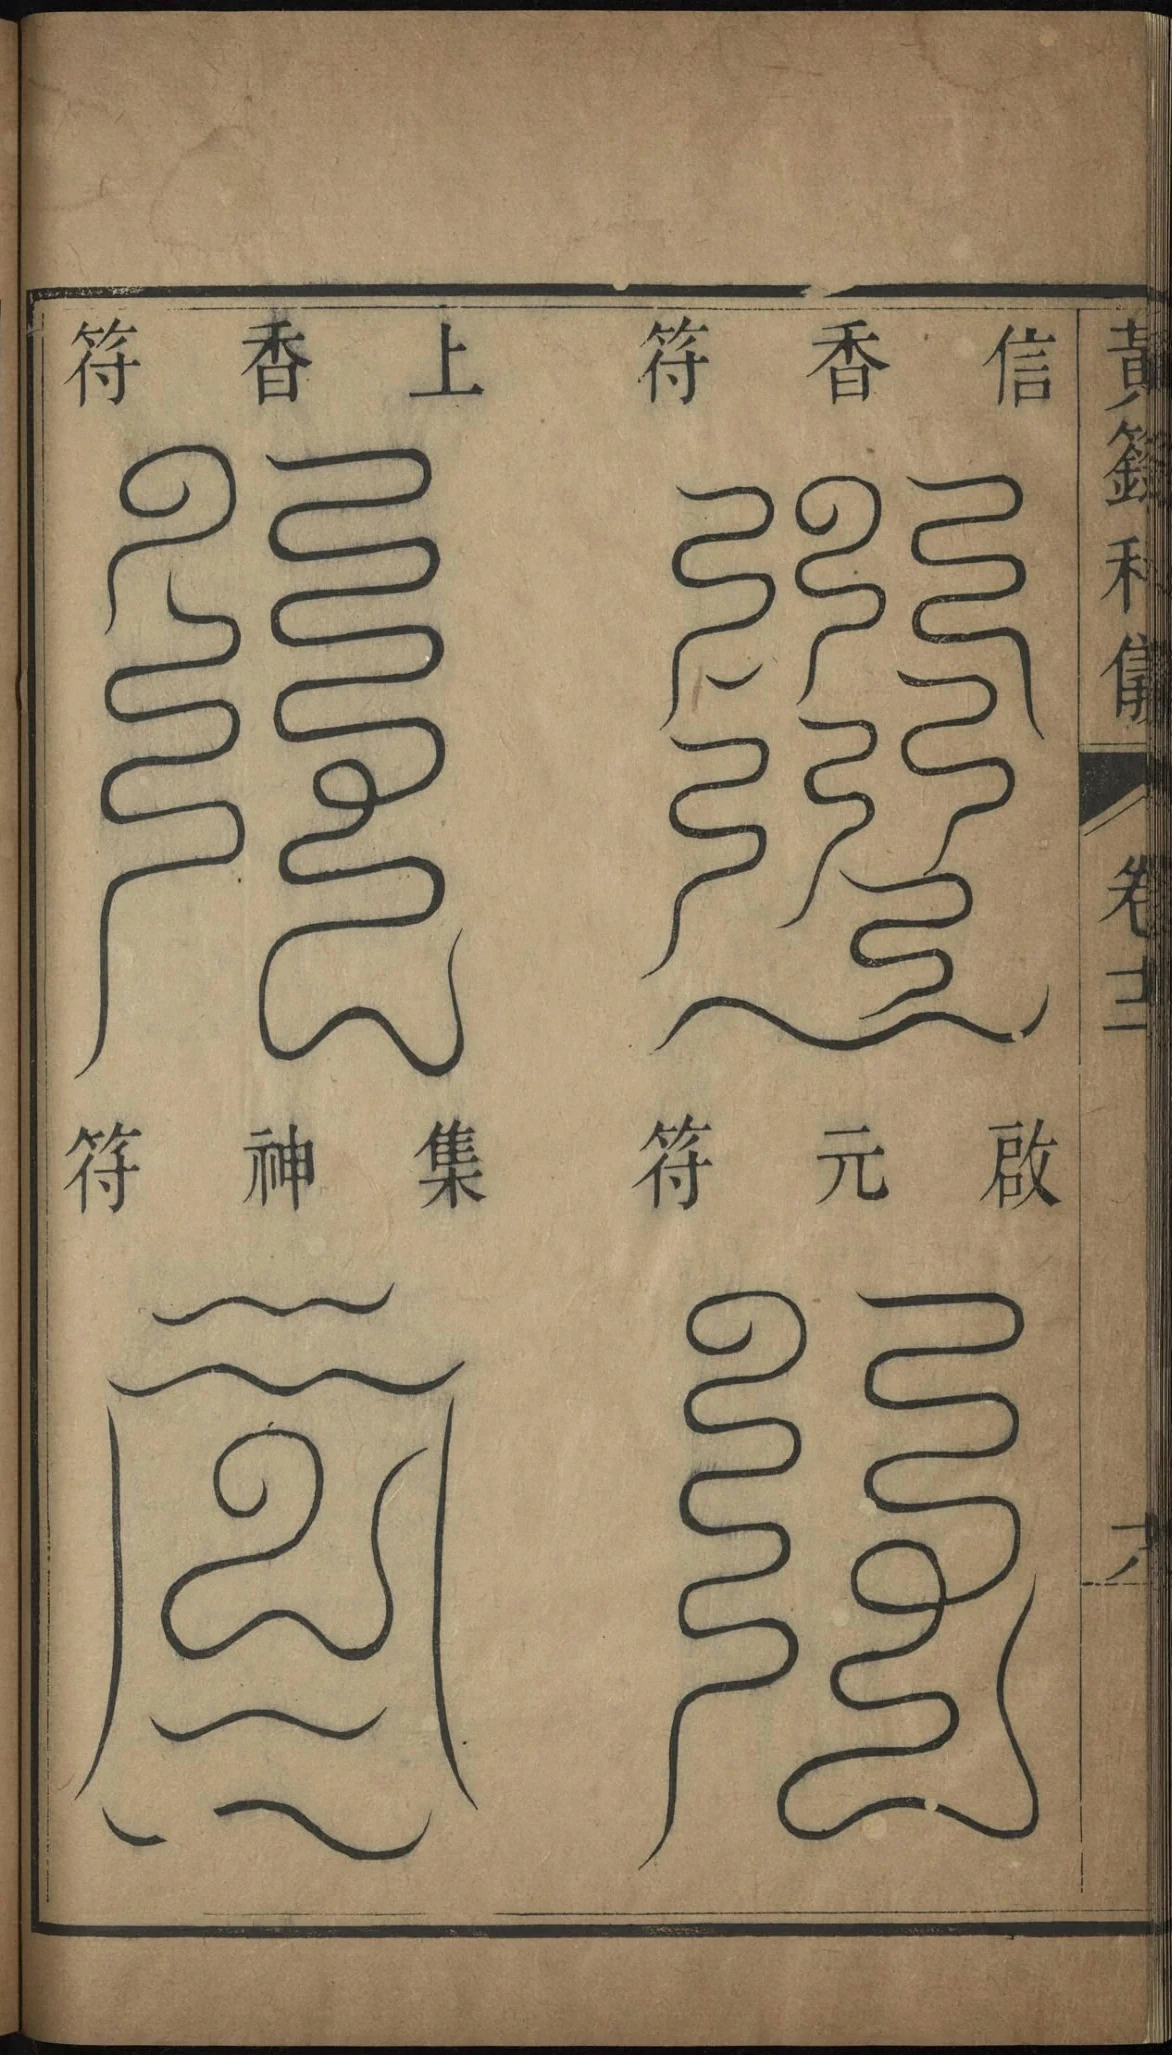 信香符
上香符
啟元符
集神符
黃籙科儀
卷十二
六